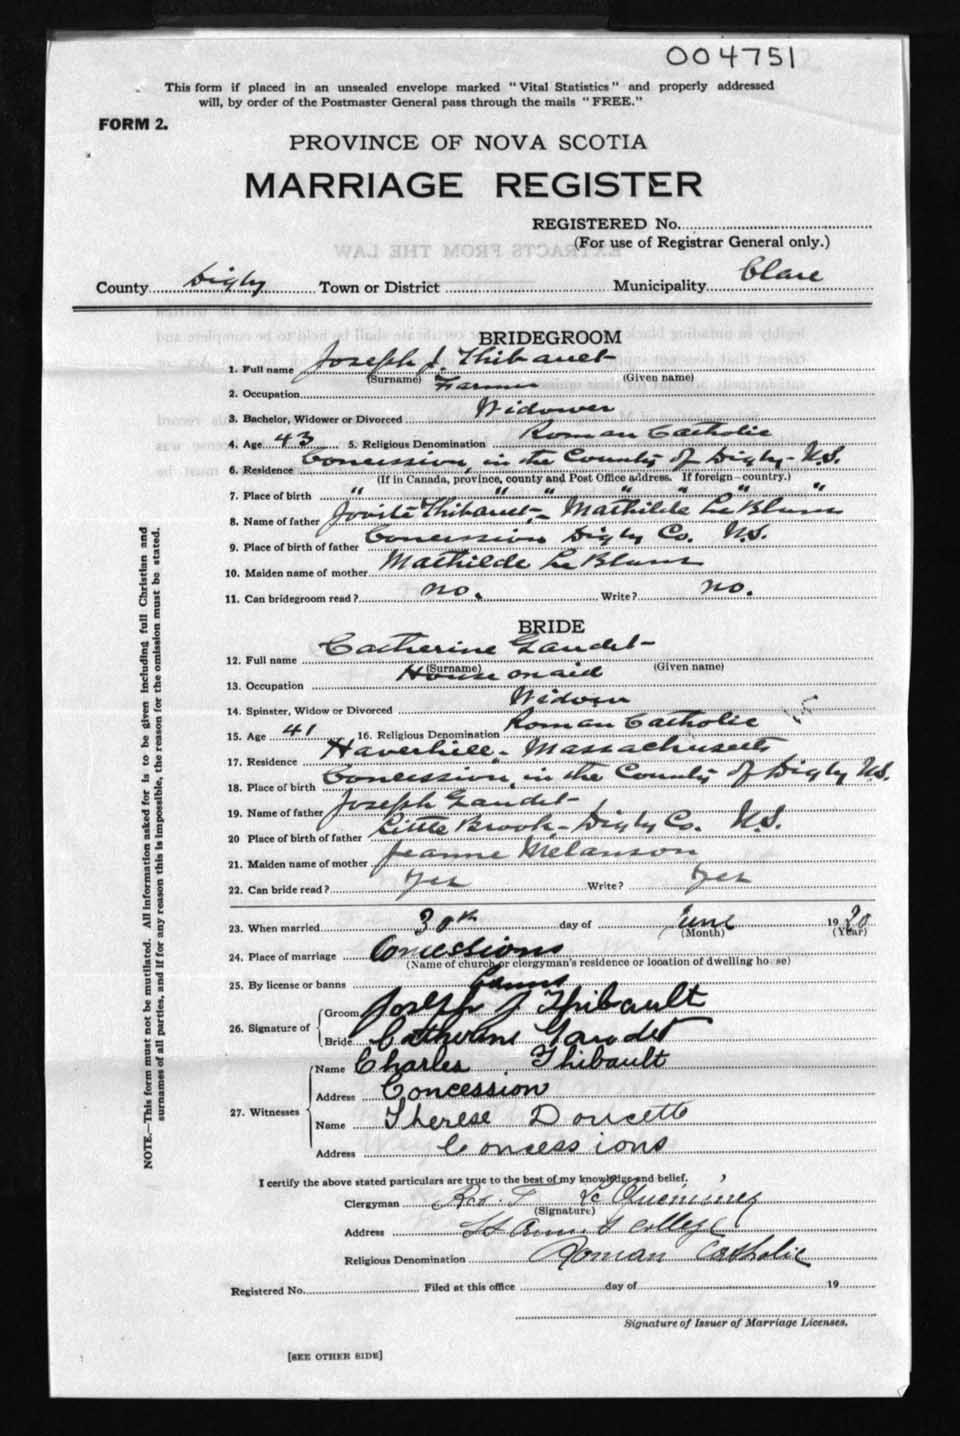 004751
This form if placed in an unsealed envelope marked "Vital Statistics" and properly addressed
will, by order of the Postmaster General pass through the mails "FREE."
FORM 2.
PROVINCE OF NOVA SCOTIA
MARRIAGE REGISTER
REGISTERED No.
(For use of Registrar General only.)
County Digby Town or District Municipality Clare
BRIDEGROOM
1. Full name Joseph J. Thibault
(Surname) (Given name)
2. Occupation Farmer
3. Bachelor, Widower or Divorced Widower
4. Age 43 5. Religious Denomination Roman Catholic
6. Residence Concession, in the County of Digby - N.S.
(If in Canada, province, county and Post Office address. If foreign—country.)
7. Place of birth " " " " " "
8. Name of father Jovite Thibault, - Mathilde Le Blanc
9. Place of birth of father Concession Digby Co. N.S.
10. Maiden name of mother Mathilde Le Blanc
11. Can bridegroom read? no. Write? no.
BRIDE
12. Full name Catherine Gaudet
(Surname) (Given name)
13. Occupation House maid
14. Spinster, Widow or Divorced Widow
15. Age 41 16. Religious Denomination Roman Catholic
17. Residence Haverhill, Massachusetts
18. Place of birth Concession, in the County of Digby N.S.
19. Name of father Joseph Gaudet
20 Place of father Little Brook, - Digby Co. N.S.
21. Maiden name of mother Jeanne Melanson
22. Can bride read? Yes Write? Yes
23. When married 30th day of June 1920
(Month) (Year)
24. Place of marriage Concessions
(Name of church or clergyman's residence or location of dwelling house)
25. By license or banns banns
26. Signature of
Groom Joseph J Thibault
Bride Catherine Gaudet
27. Witnesses
Name Charles Thibault
Address Concession
Name Therese Doucette
Address Concessions
I certify the above stated particulars are true to the best of my knowledge and belief.
Clergyman Rev. T Le Quemmer
(Signature)
Address St Ann's College
Religious Denomination Roman Catholic
Registered No. Filed at this office day of 19
Signature of Issuer of Marriage Licenses.
[SEE OTHER SIDE]
NOTE.—This form must not be mutilated. All information asked for is to be given including full Christian and
surnames of all parties, and if for any reason this is impossible, the reason for the omission must be stated.
EXTRACTS FROM THE LAW